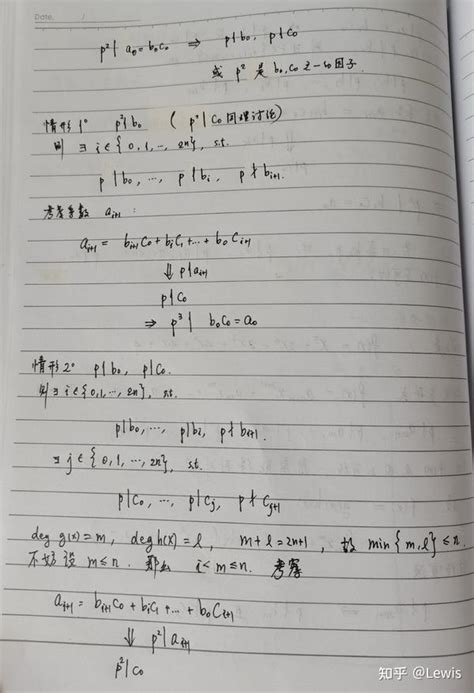 Date. /
p² | a₀ = b₀c₀ ⇒ p | b₀, p | c₀
或 p² 是 b₀, c₀ 之一的因子
情形1° p² | b₀ ( p² | c₀ 同理讨论)
则 ∃ i ∈ {0, 1, …, 2n}, s.t.
p | b₀, …, p | bᵢ, p ∤ bᵢ₊₁.
考虑系数 aᵢ₊₁ :
aᵢ₊₁ = bᵢ₊₁c₀ + bᵢc₁ + … + b₀cᵢ₊₁
⇓ p | aᵢ₊₁
p | c₀
⇒ p³ | b₀c₀ = a₀
情形2° p | b₀, p | c₀.
则 ∃ i ∈ {0, 1, …, 2n}, s.t.
p | b₀, …, p | bᵢ, p ∤ bᵢ₊₁.
∃ j ∈ {0, 1, …, 2n}, s.t.
p | c₀, …, p | cⱼ, p ∤ cⱼ₊₁
deg g(x) = m, deg h(x) = l, m + l = 2n+1, 故 min{m, l} ≤ n.
不妨设 m ≤ n. 那么 i < m ≤ n. 考察
aᵢ₊₁ = bᵢ₊₁c₀ + bᵢc₁ + … + b₀cᵢ₊₁
⇓ p² | aᵢ₊₁
p² | c₀
知乎 @Lewis